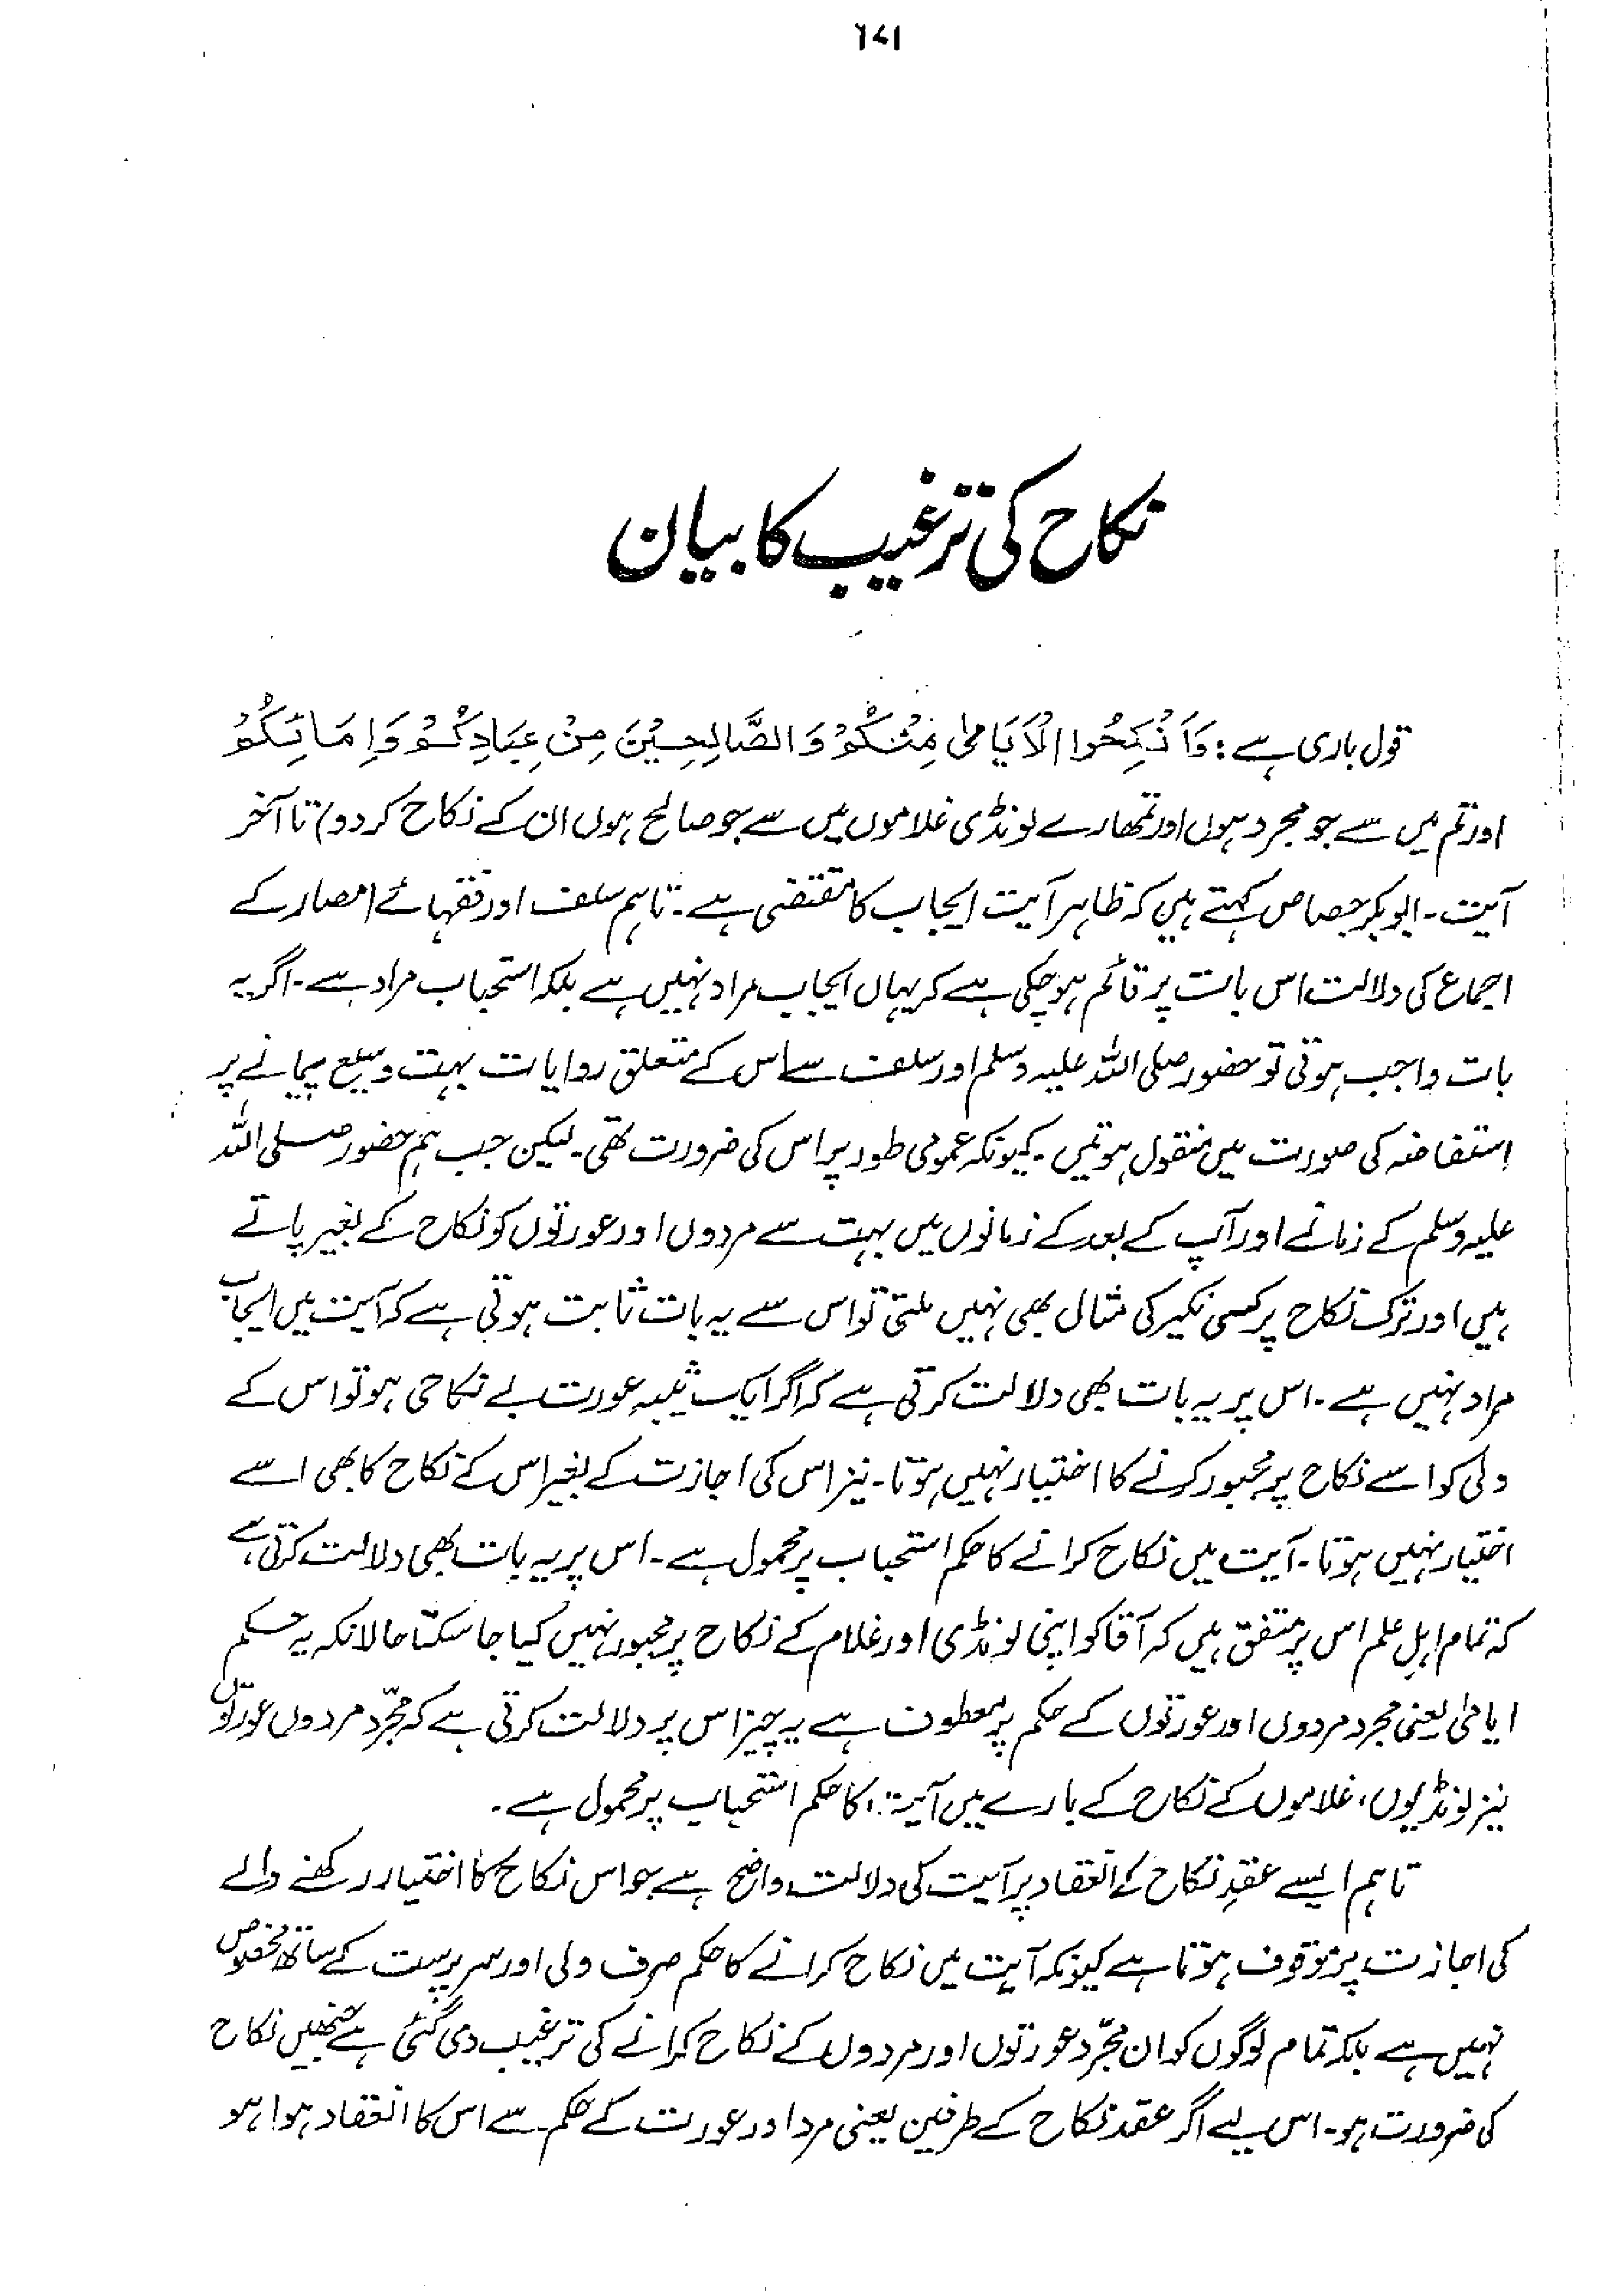 ۱۷۱
نکاح کی ترغیب کا بیان
قول باری ہے: وَاَنْکِحُوا الْاَیَامٰی مِنْکُمْ وَالصَّالِحِیْنَ مِنْ عِبَادِکُمْ وَاِمَائِکُمْ
اور تم میں سے جو مجرد ہوں اور تمھارے لونڈی غلاموں میں سے جو صالح ہوں ان کے نکاح کر دو) تا آخر
آیت۔ ابوبکر جصاص کہتے ہیں کہ ظاہر آیت ایجاب کا مقتضی ہے۔ تاہم سلف اور فقہائے امصار کے
اجماع کی دلالت اس بات پر قائم ہو چکی ہے کہ یہاں ایجاب مراد نہیں ہے بلکہ استحباب مراد ہے۔ اگر یہ
بات واجب ہوتی تو حضور صلی اللہ علیہ وسلم اور سلف سے اس کے متعلق روایات بہت وسیع پیمانے پر
استفاضہ کی صورت میں منقول ہوتیں۔ کیونکہ عمومی طور پر اس کی ضرورت تھی۔ لیکن جب ہم حضور صلی اللہ
علیہ وسلم کے زمانے اور آپ کے بعد کے زمانوں میں بہت سے مردوں اور عورتوں کو نکاح کے بغیر پاتے
ہیں اور ترک نکاح پر کسی نکیر کی مثال بھی نہیں ملتی تو اس سے یہ بات ثابت ہوتی ہے کہ آیت میں ایجاب
مراد نہیں ہے۔ اس پر یہ بات بھی دلالت کرتی ہے کہ اگر ایک ثیبہ عورت بے نکاحی ہو تو اس کے
ولی کو اسے نکاح پر مجبور کرنے کا اختیار نہیں ہوتا۔ نیز اس کی اجازت کے بغیر اس کے نکاح کا بھی اسے
اختیار نہیں ہوتا۔ آیت میں نکاح کرانے کا حکم استحباب پر محمول ہے۔ اس پر یہ بات بھی دلالت کرتی ہے
کہ تمام اہلِ علم اس پر متفق ہیں کہ آقا کو اپنی لونڈی اور غلام کے نکاح پر مجبور نہیں کیا جا سکتا حالانکہ یہ حکم
ایامیٰ یعنی مجرد مردوں اور عورتوں کے حکم پر معطوف ہے یہ چیز اس پر دلالت کرتی ہے کہ مجرّد مردوں عورتوں
نیز لونڈیوں، غلاموں کے نکاح کے بارے میں آیت کا حکم استحباب پر محمول ہے۔
تاہم ایسے عقدِ نکاح کے انعقاد پر آیت کی دلالت واضح ہے جو اس نکاح کا اختیار رکھنے والے
کی اجازت پر موقوف ہوتا ہے کیونکہ آیت میں نکاح کرانے کا حکم صرف ولی اور سرپرست کے ساتھ مخصوص
نہیں ہے بلکہ تمام لوگوں کو ان مجرّد عورتوں اور مردوں کے نکاح کرانے کی ترغیب دی گئی ہے جنھیں نکاح
کی ضرورت ہو۔ اس لیے اگر عقد نکاح کے طرفین یعنی مرد اور عورت کے حکم سے اس کا انعقاد ہوا ہو